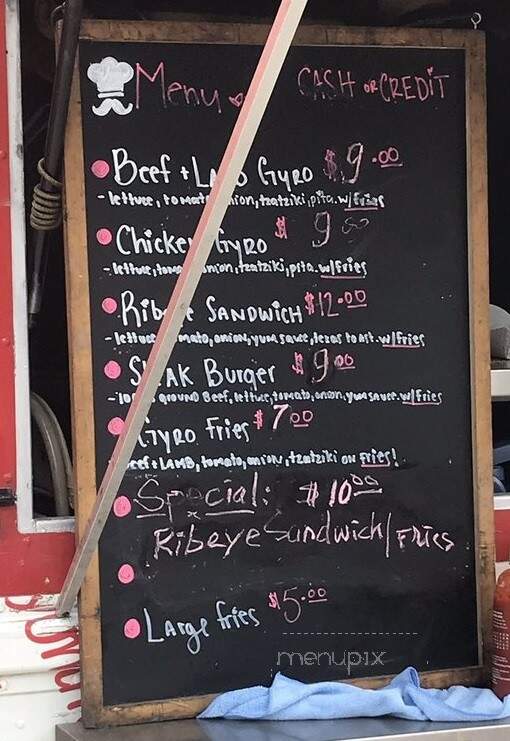 Menu CASH OR CREDIT
Beef + LAMB GYRO $9.00
- lettuce, tomato, onion, tzatziki, pita. w/ fries
Chicken GYRO $9
- lettuce, onion, tzatziki, pita. w/fries
Ribeye SANDWICH $12.00
- lettuce, tomato, onion, yum sauce, texas toast. w/fries
STEAK Burger $9.00
GROUND Beef, lettuce, tomato, onion, yum sauce. w/ Fries
GYRO Fries $7.00
Beef + LAMB, tomato, onion, tzatziki on fries!
Special: $10.00
Ribeye Sandwich/ FRIES
Large fries $5.00
menupix